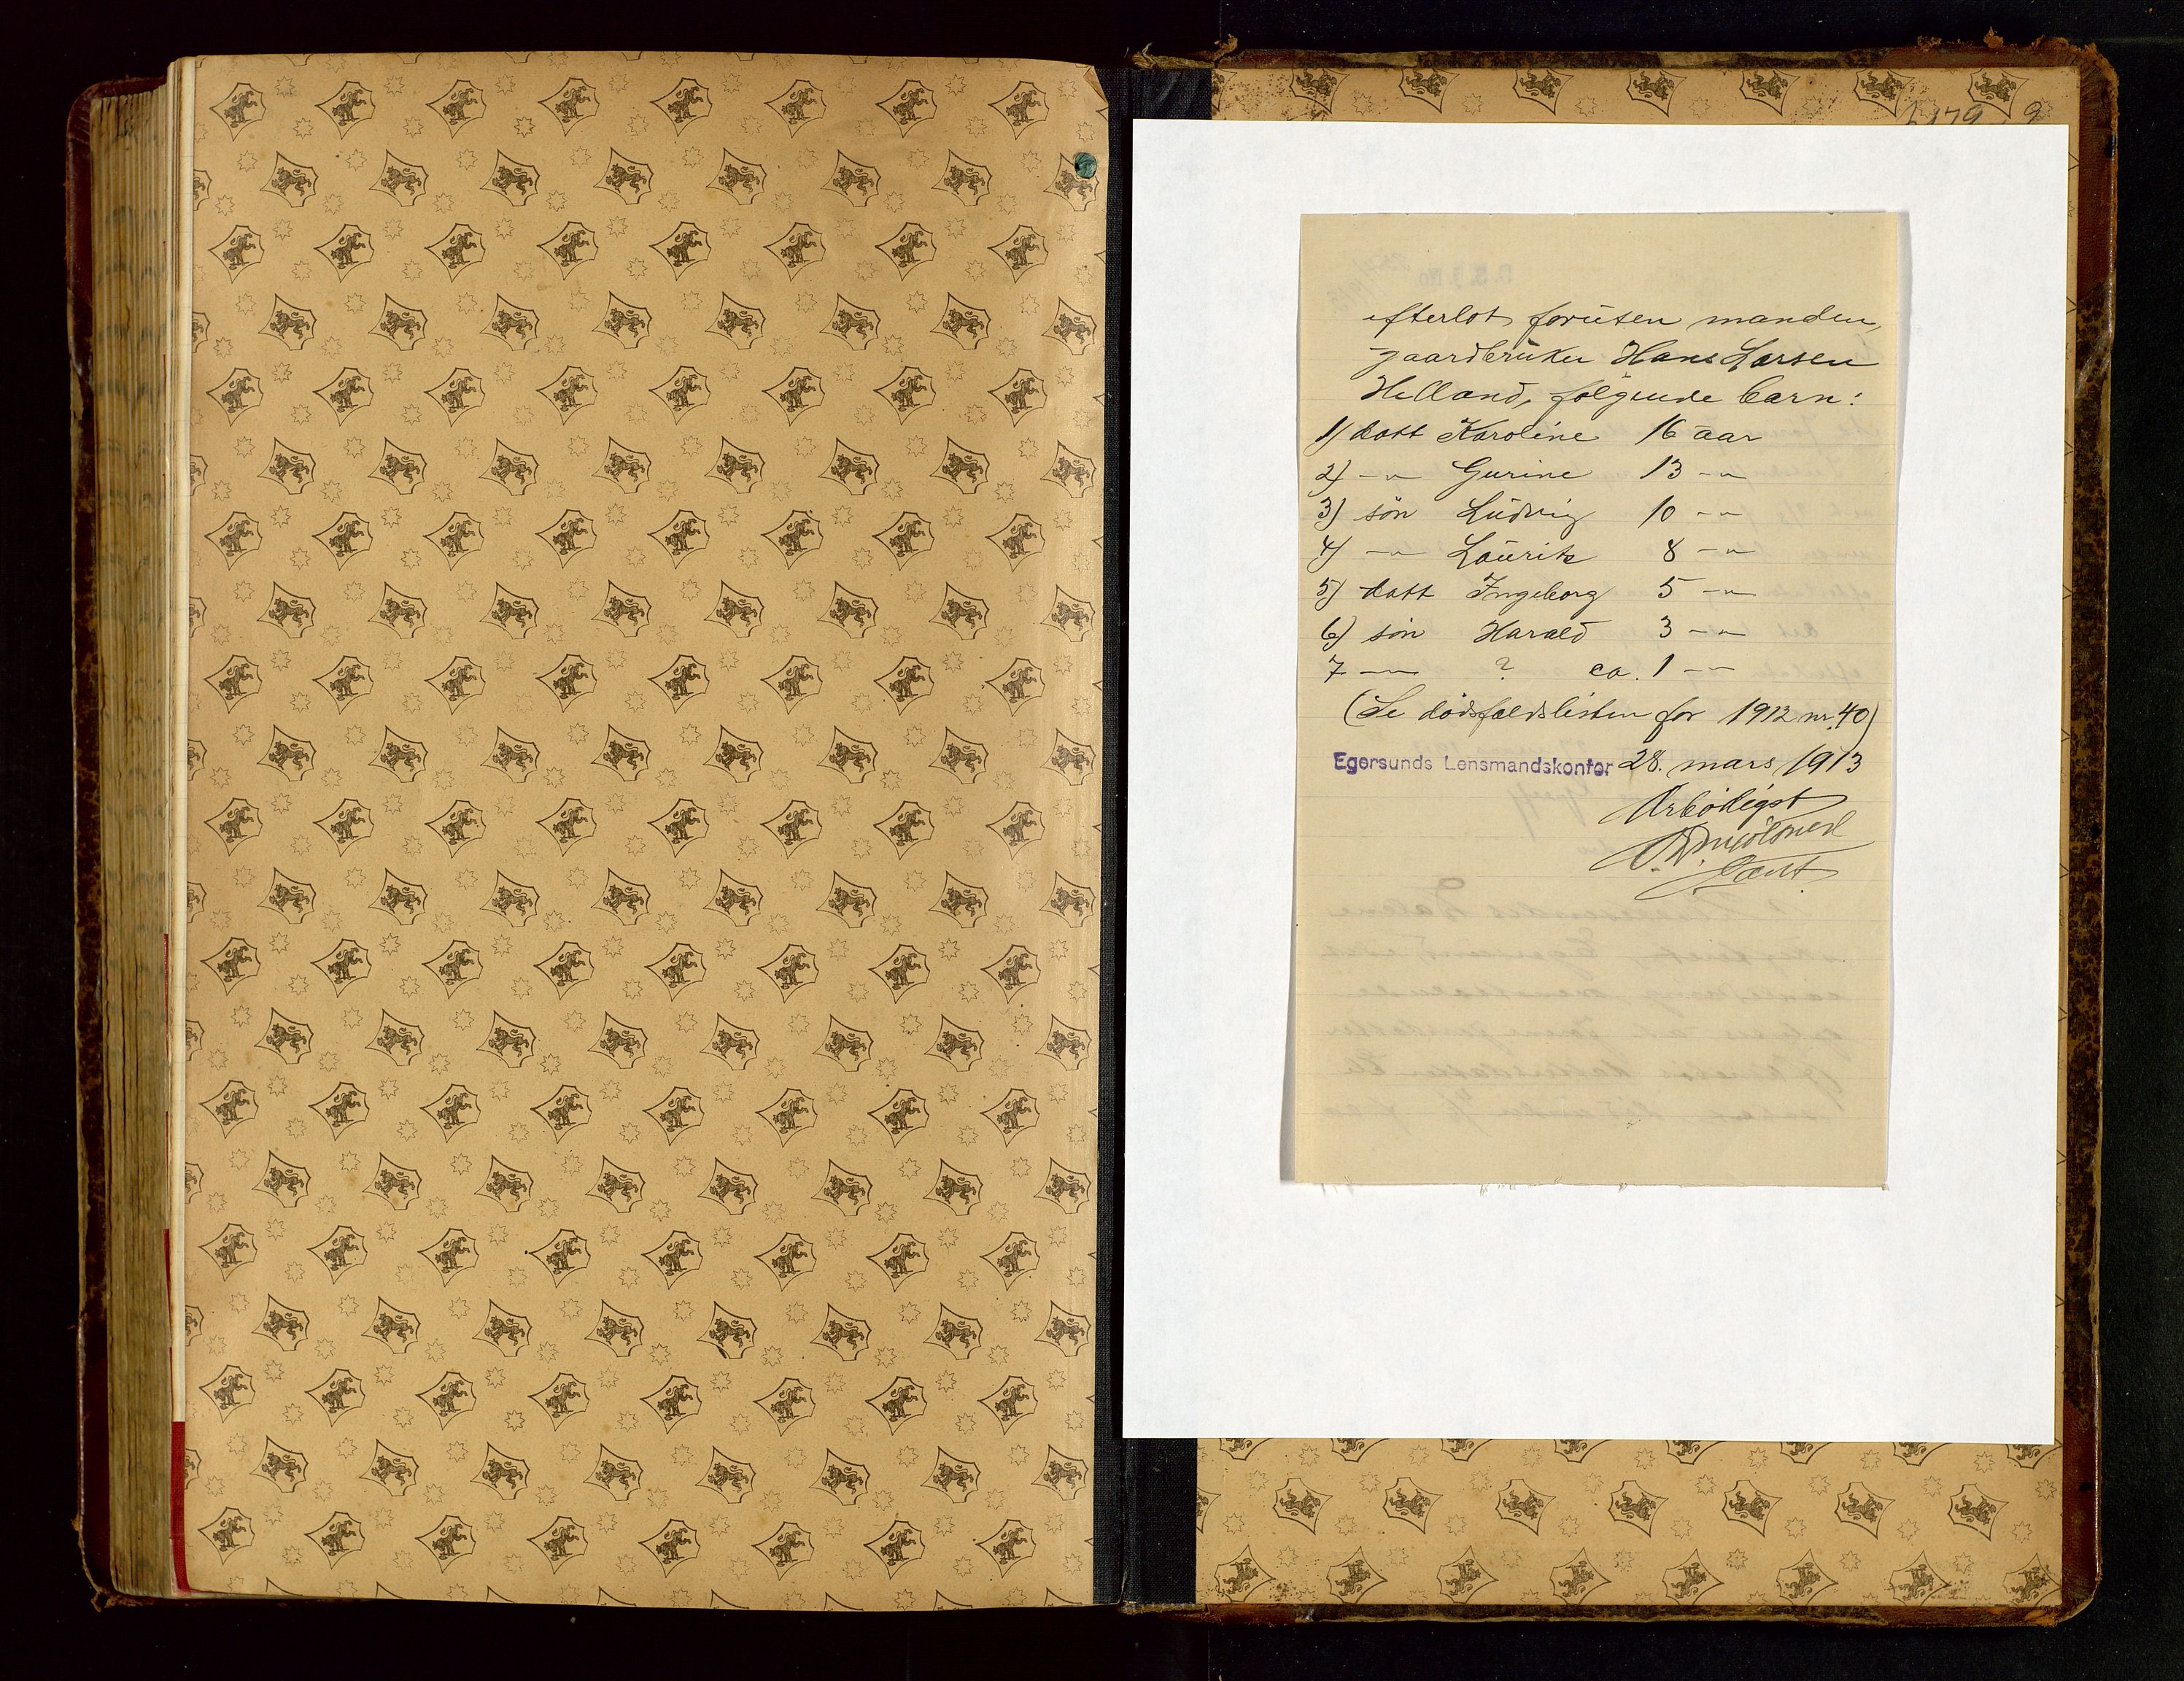 efterlot, foruten manden,
gaardbruker Hans Larsen
Helland, følgende barn:
1) datt Karoline 16 aar
2) -"- Gurine 13 -"-
3) søn Ludvig 10 -"-
4) -"- Lauritz 8 -"-
5) datt Ingeborg 5 -"-
6) søn Harald 3 -"-
7 -"- ? ca. 1 -"-
(Se dødsfaldslisten for 1912 nr. 40)
Egersunds Lensmandskontor 28. mars 1913
Ærbødigst